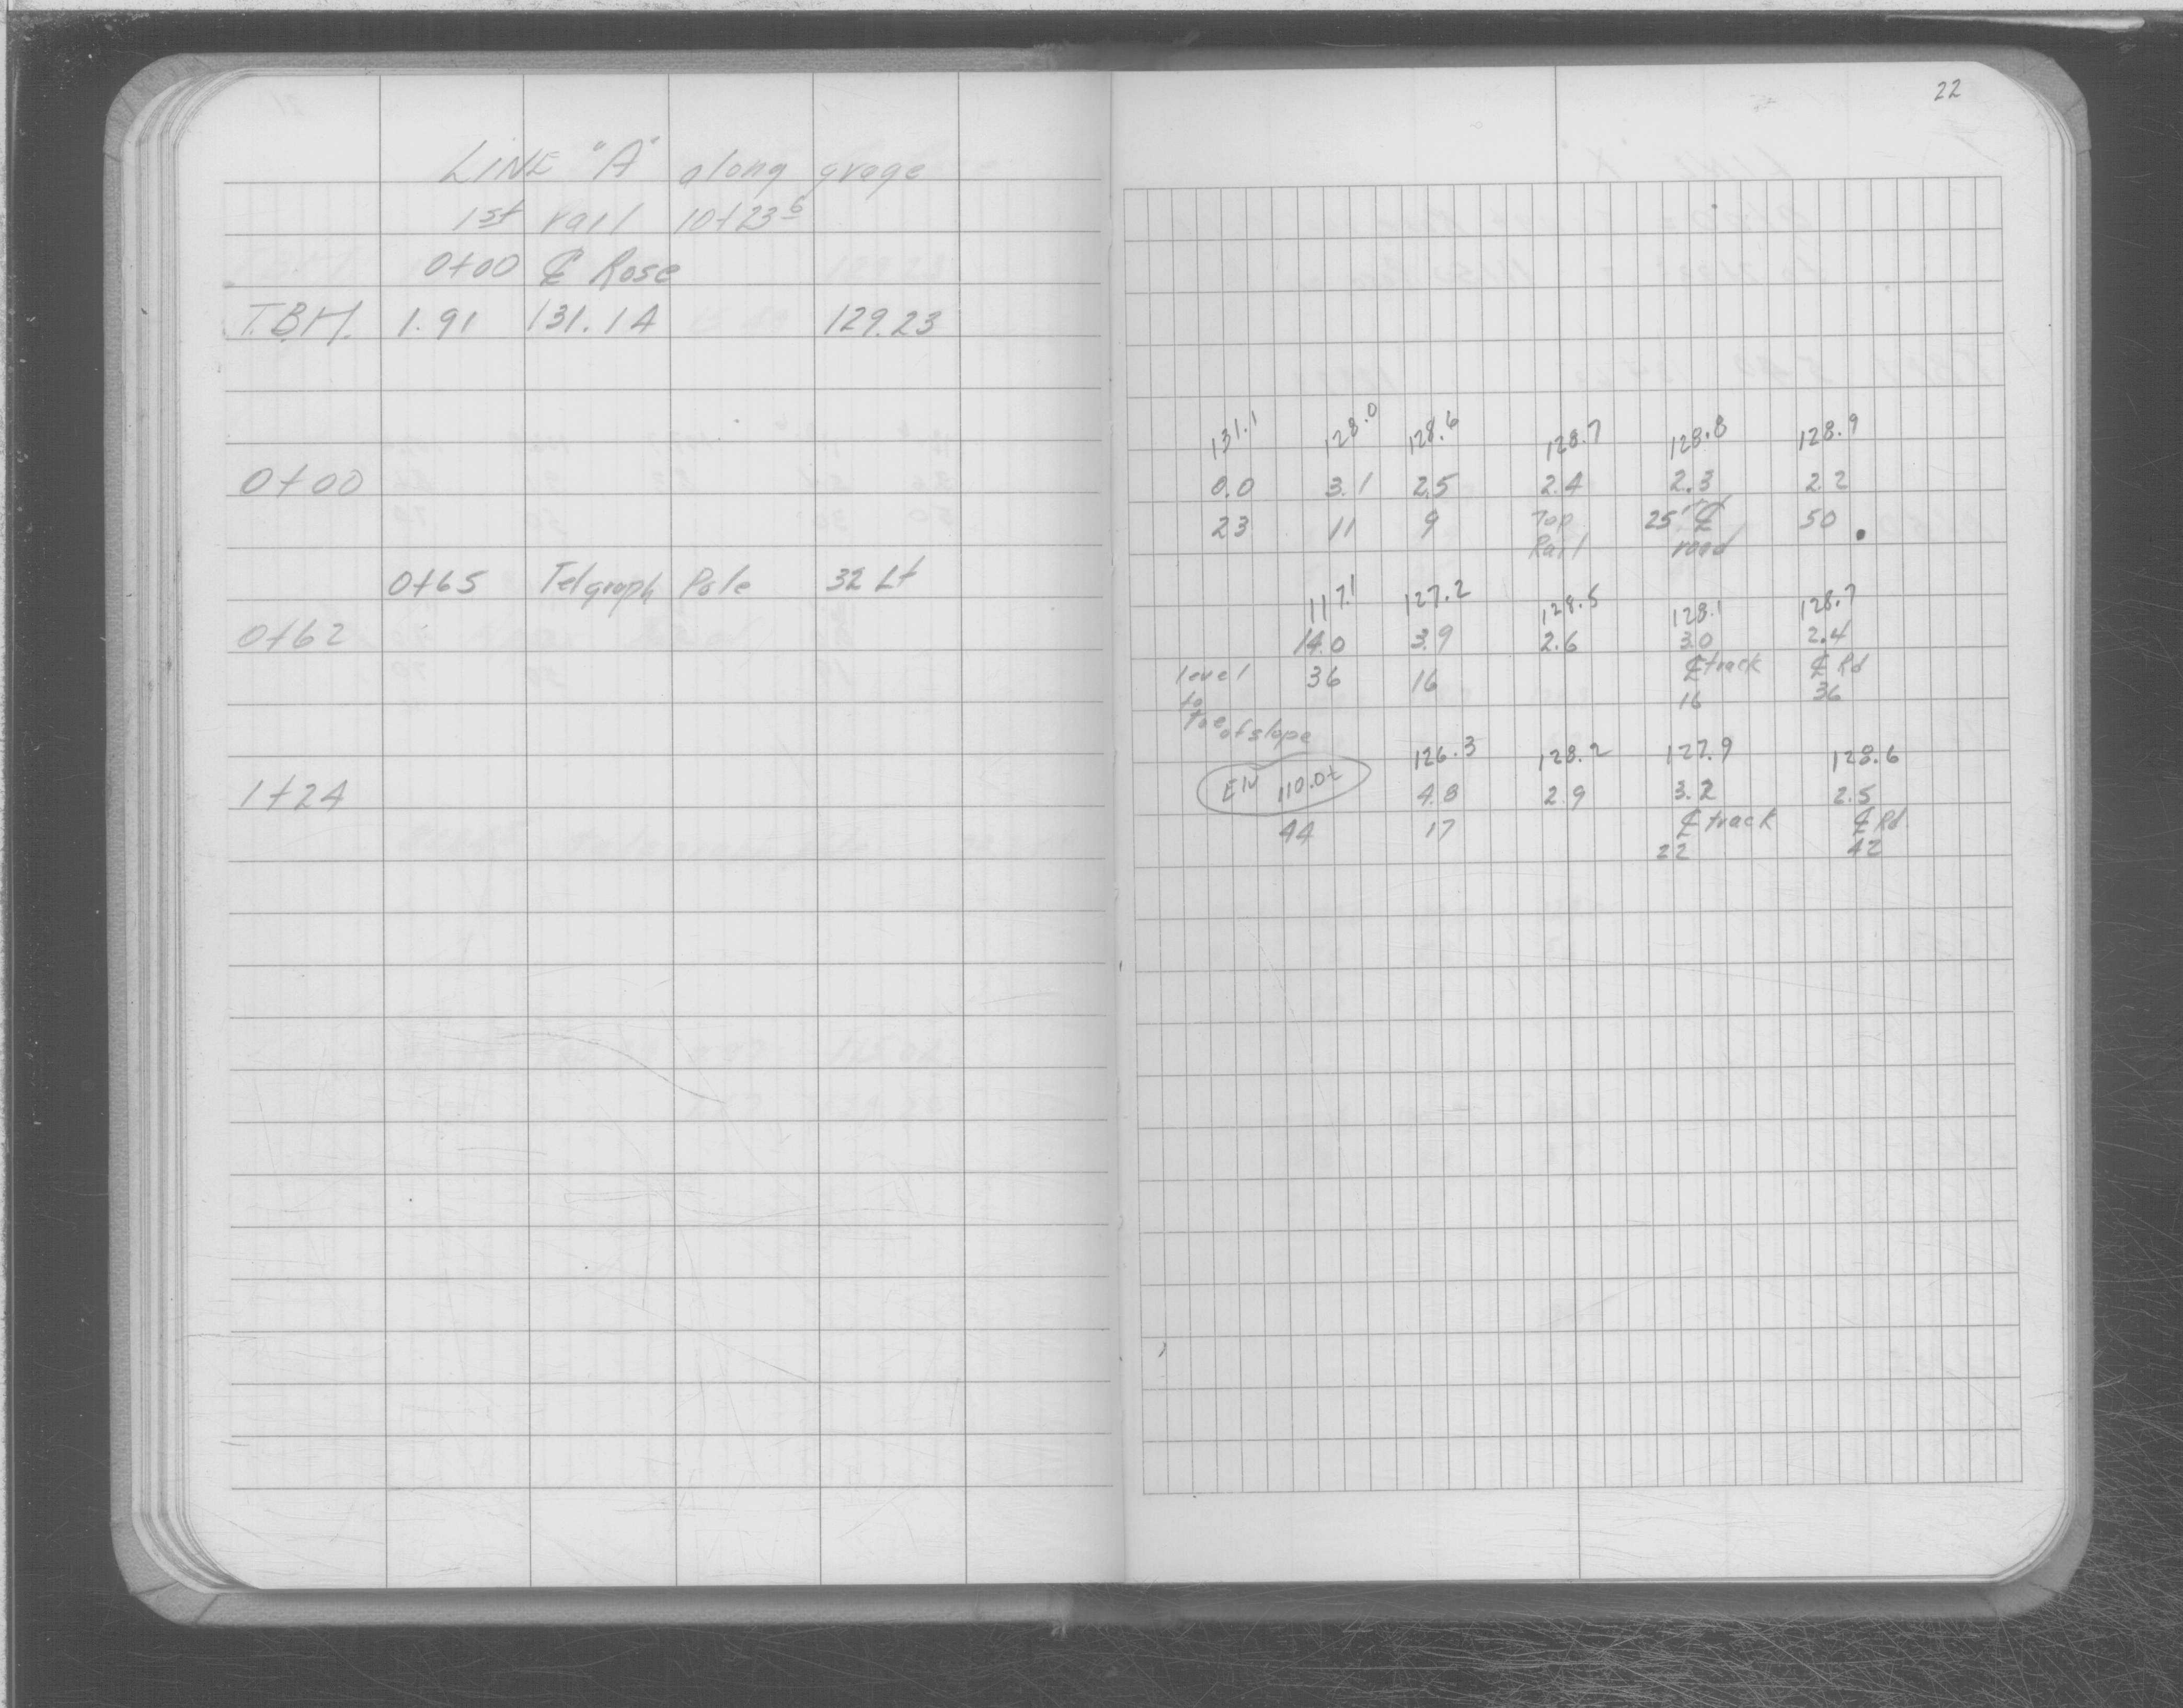 22
LINE "A" along grage
1st rail 10+23 6
0+00 ℄ Rose
T.B.M. 1.91 131.14 129.23
131.1 128.0 128.6 128.7 128.8 128.9
0+00 0.0 3.1 2.5 2.4 2.3 2.2
23 11 9 Top 25' ℄ 50
Rail road
0+65 Telgraph Pole 32 Lt
117.1 127.2 128.5 128.1 128.7
0+62 14.0 3.9 2.6 3.0 2.4
level 36 16 ℄ track ℄ Rd
to 16 36
toe of slope
126.3 128.2 127.9 128.6
1+24 Elv 110.0± 4.8 2.9 3.2 2.5
44 17 ℄ track ℄ Rd.
22 42